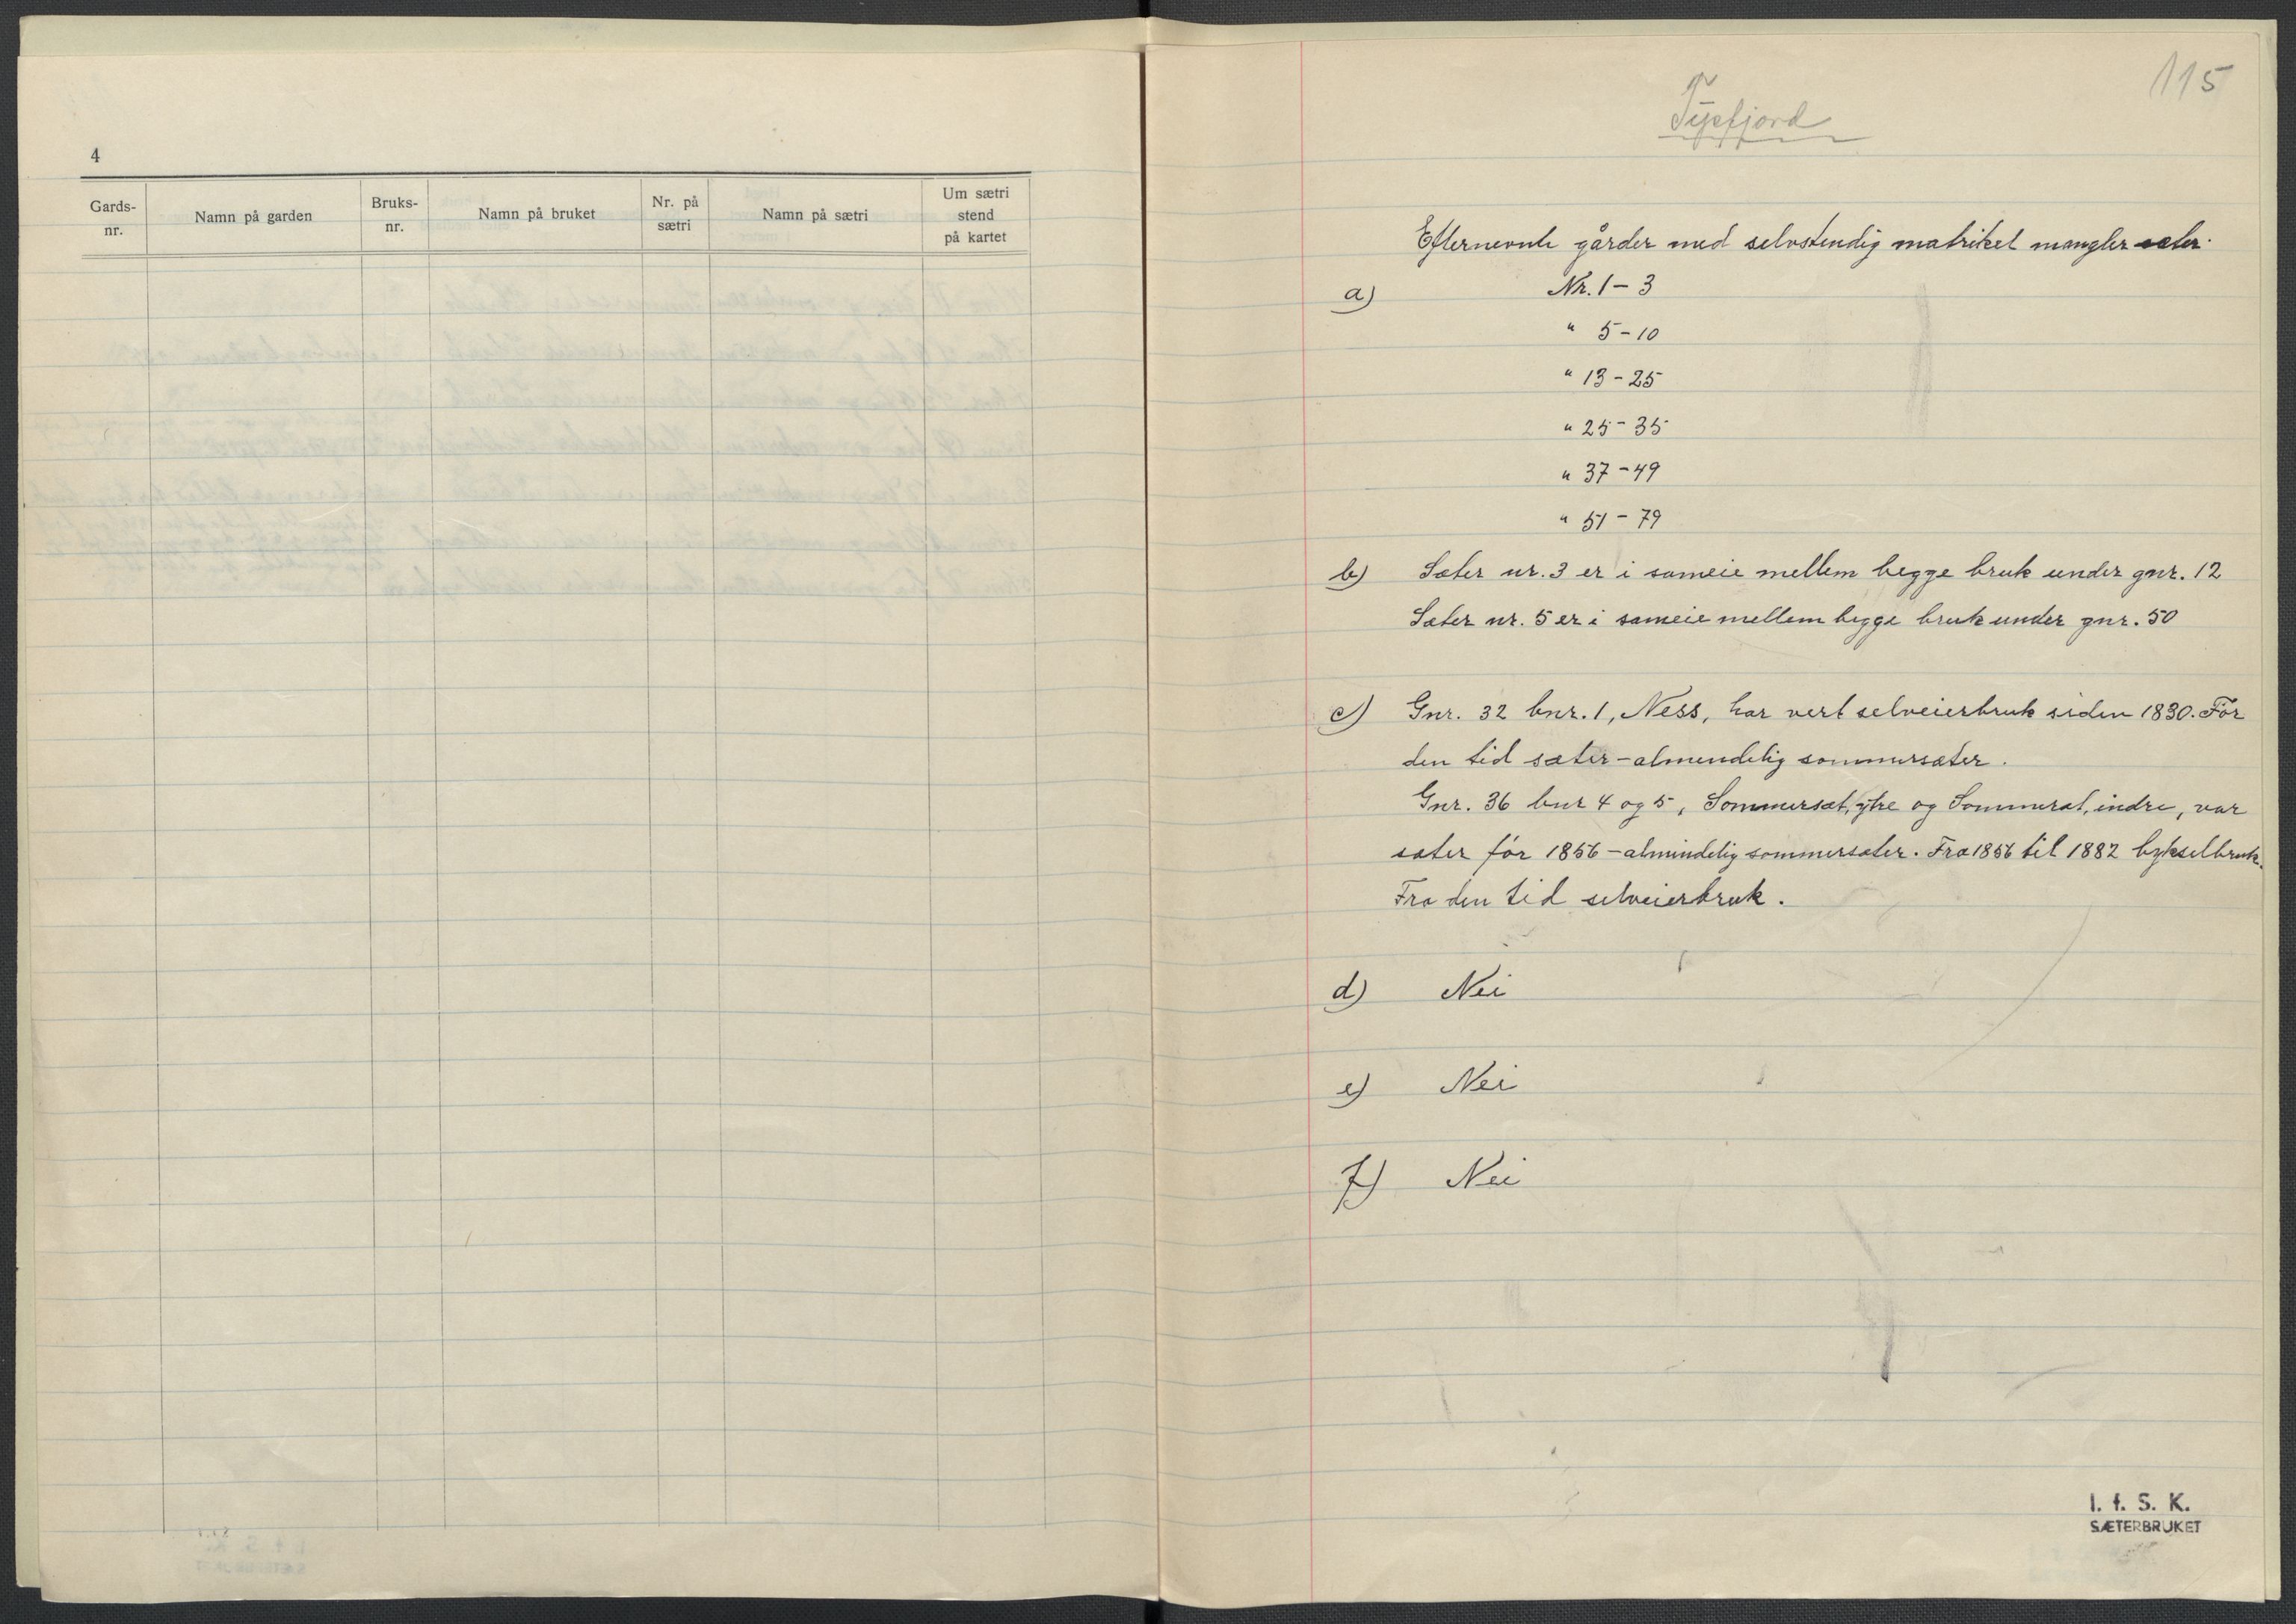 4
Gards-
nr.
Namn på garden
Bruks-
nr.
Namn på bruket
Nr. på
sætri
Namn på sætri
Um sætri
stend
på kartet
115
Tysfjord
Efternevnte gårder med selvstendig matrikel mangler sæter.
a) Nr. 1 - 3
" 5 - 10
" 13 - 25
" 25 - 35
" 37 - 49
" 51 - 79
b) Sæter nr. 3 er i sameie mellem begge bruk under gnr. 12
Sæter nr. 5 er i sameie mellem begge bruk under gnr. 50
c) Gnr. 32 bnr. 1, Ness, har vert selveierbruk siden 1830. Før
den tid sæter - almendelig sommersæter.
Gnr. 36 bnr 4 og 5, Sommersæt, ytre og Sommersæt, indre, var
sæter før 1856 - almindelig sommersæter. Fra 1856 til 1882 bykselbruk.
Fra den tid selveierbruk.
d) Nei
e) Nei
f) Nei
I. f. S. K.
SÆTERBRUKET